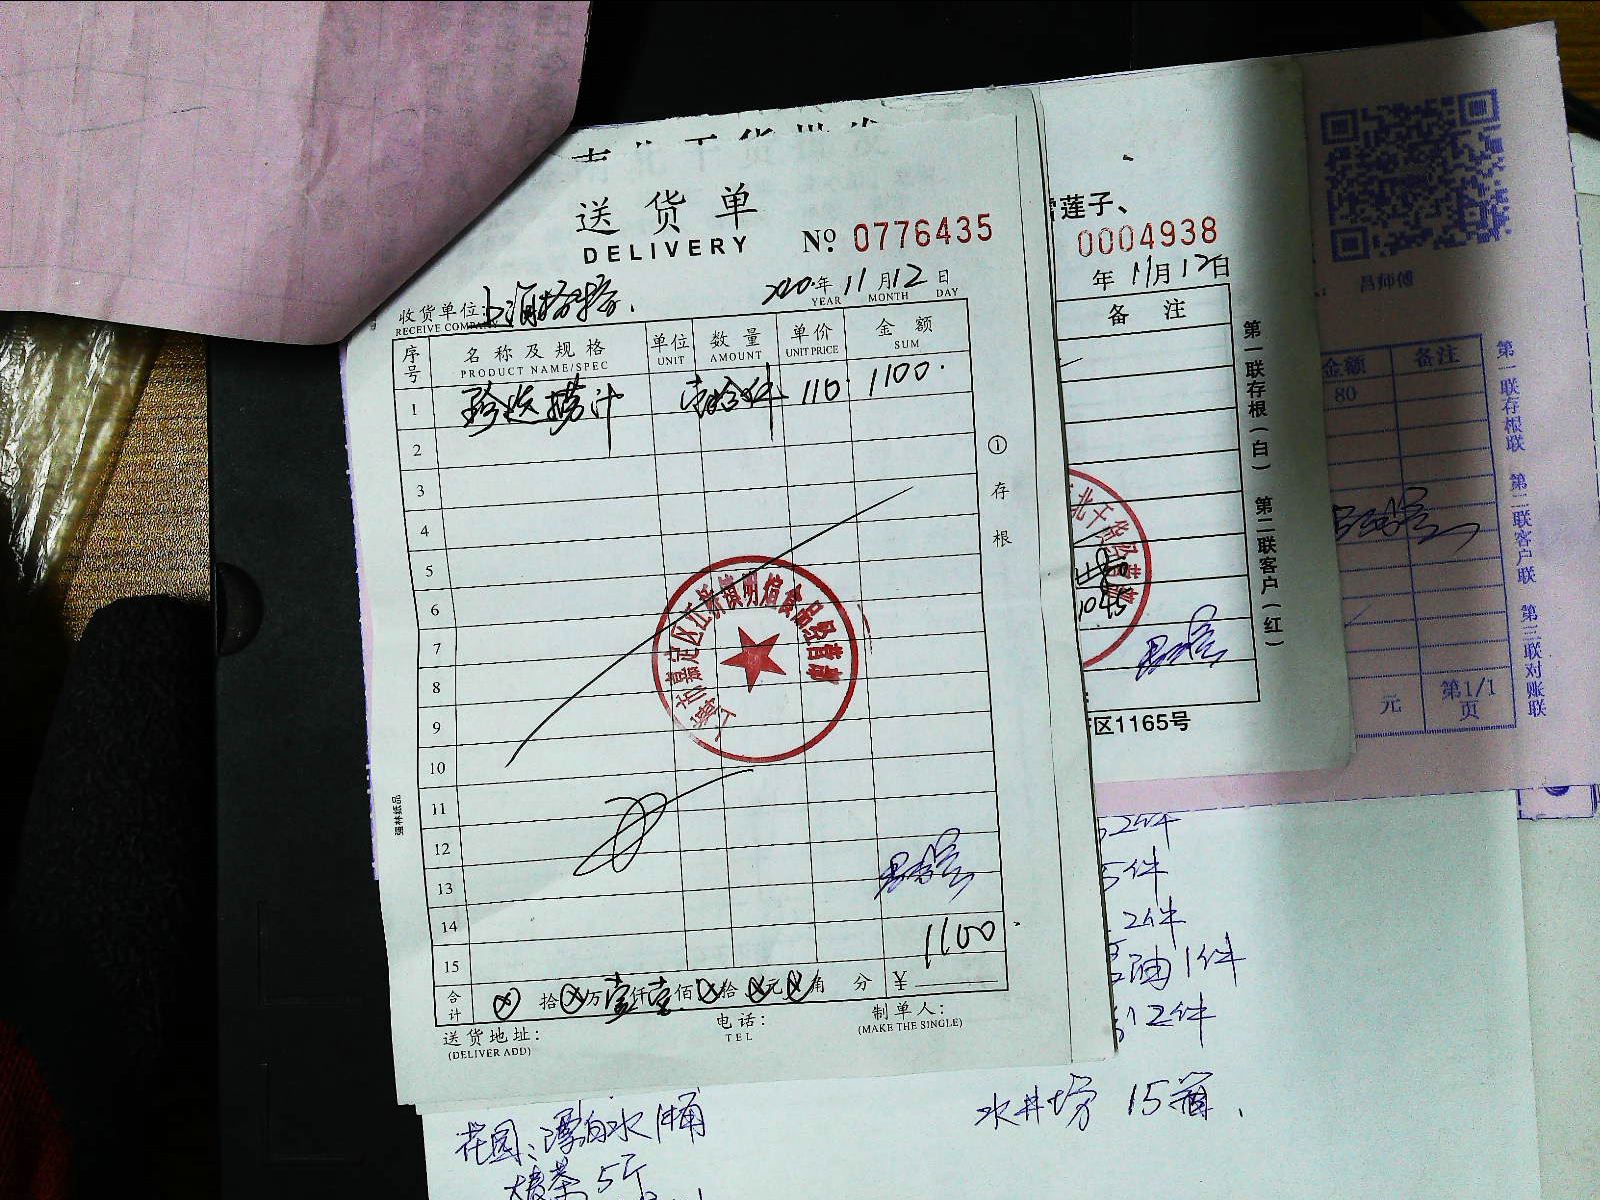 送货单
DELIVERY
№ 0776435
收货单位:
RECEIVE COMPA
2020年11月12日
YEAR MONTH DAY
序号 名称及规格 单位 数量 单价 金额
PRODUCT NAME/SPEC UNIT AMOUNT UNIT PRICE SUM
1 捞汁 壹拾件 110. 1100.
2
3
4
5
6
7
8
9
10
11
12
13
14
15
1100
合计 拾 万壹仟壹佰 拾 元 角 分 ¥
送货地址: 电话: 制单人:
(DELIVER ADD) TEL (MAKE THE SINGLE)
①存根
市嘉定区江桥镇明煊食品经营部
莲子、
0004938
年11月12日
备注
北干货经营部
1045
区1165号
第一联存根(白) 第二联客户(红)
吕师傅
金额 备注
80
元 第1/1页
第一联存根联 第二联客户联 第三联对账联
2件
5件
2件
油1件
12件
水井坊 15瓶.
花园:漂白水1桶
5斤